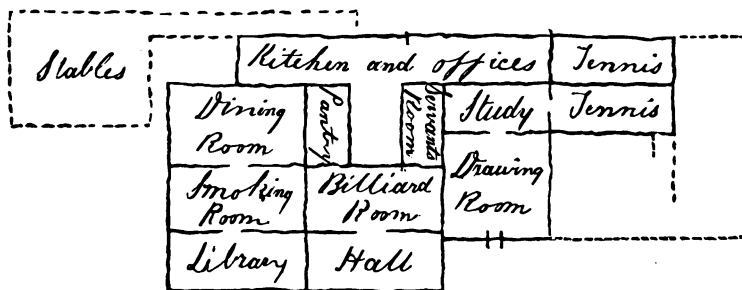 Kitchen and offices
Tennis
Stables
Dining
Room
Pantry
Servants
Room
Study
Tennis
Smoking
Room
Billiard
Room
Drawing
Room
Library
Hall